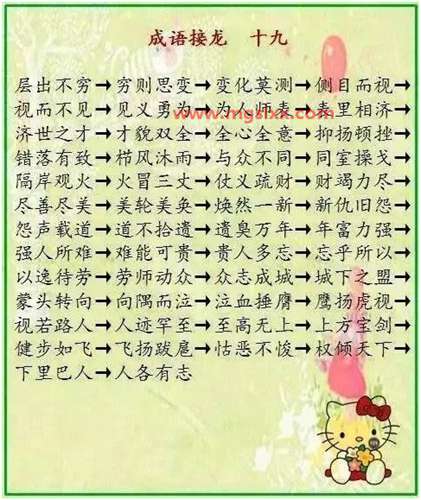 成语接龙 十九
层出不穷→穷则思变→变化莫测→侧目而视→
视而不见→见义勇为→为人师表→表里相济→
www.mgslxx.com
济世之才→才貌双全→全心全意→抑扬顿挫→
错落有致→栉风沐雨→与众不同→同室操戈→
隔岸观火→火冒三丈→仗义疏财→财竭力尽→
尽善尽美→美轮美奂→焕然一新→新仇旧怨→
怨声载道→道不拾遗→遗臭万年→年富力强→
强人所难→难能可贵→贵人多忘→忘乎所以→
以逸待劳→劳师动众→众志成城→城下之盟→
蒙头转向→向隅而泣→泣血捶膺→鹰扬虎视→
视若路人→人迹罕至→至高无上→上方宝剑→
健步如飞→飞扬跋扈→怙恶不悛→权倾天下→
下里巴人→人各有志